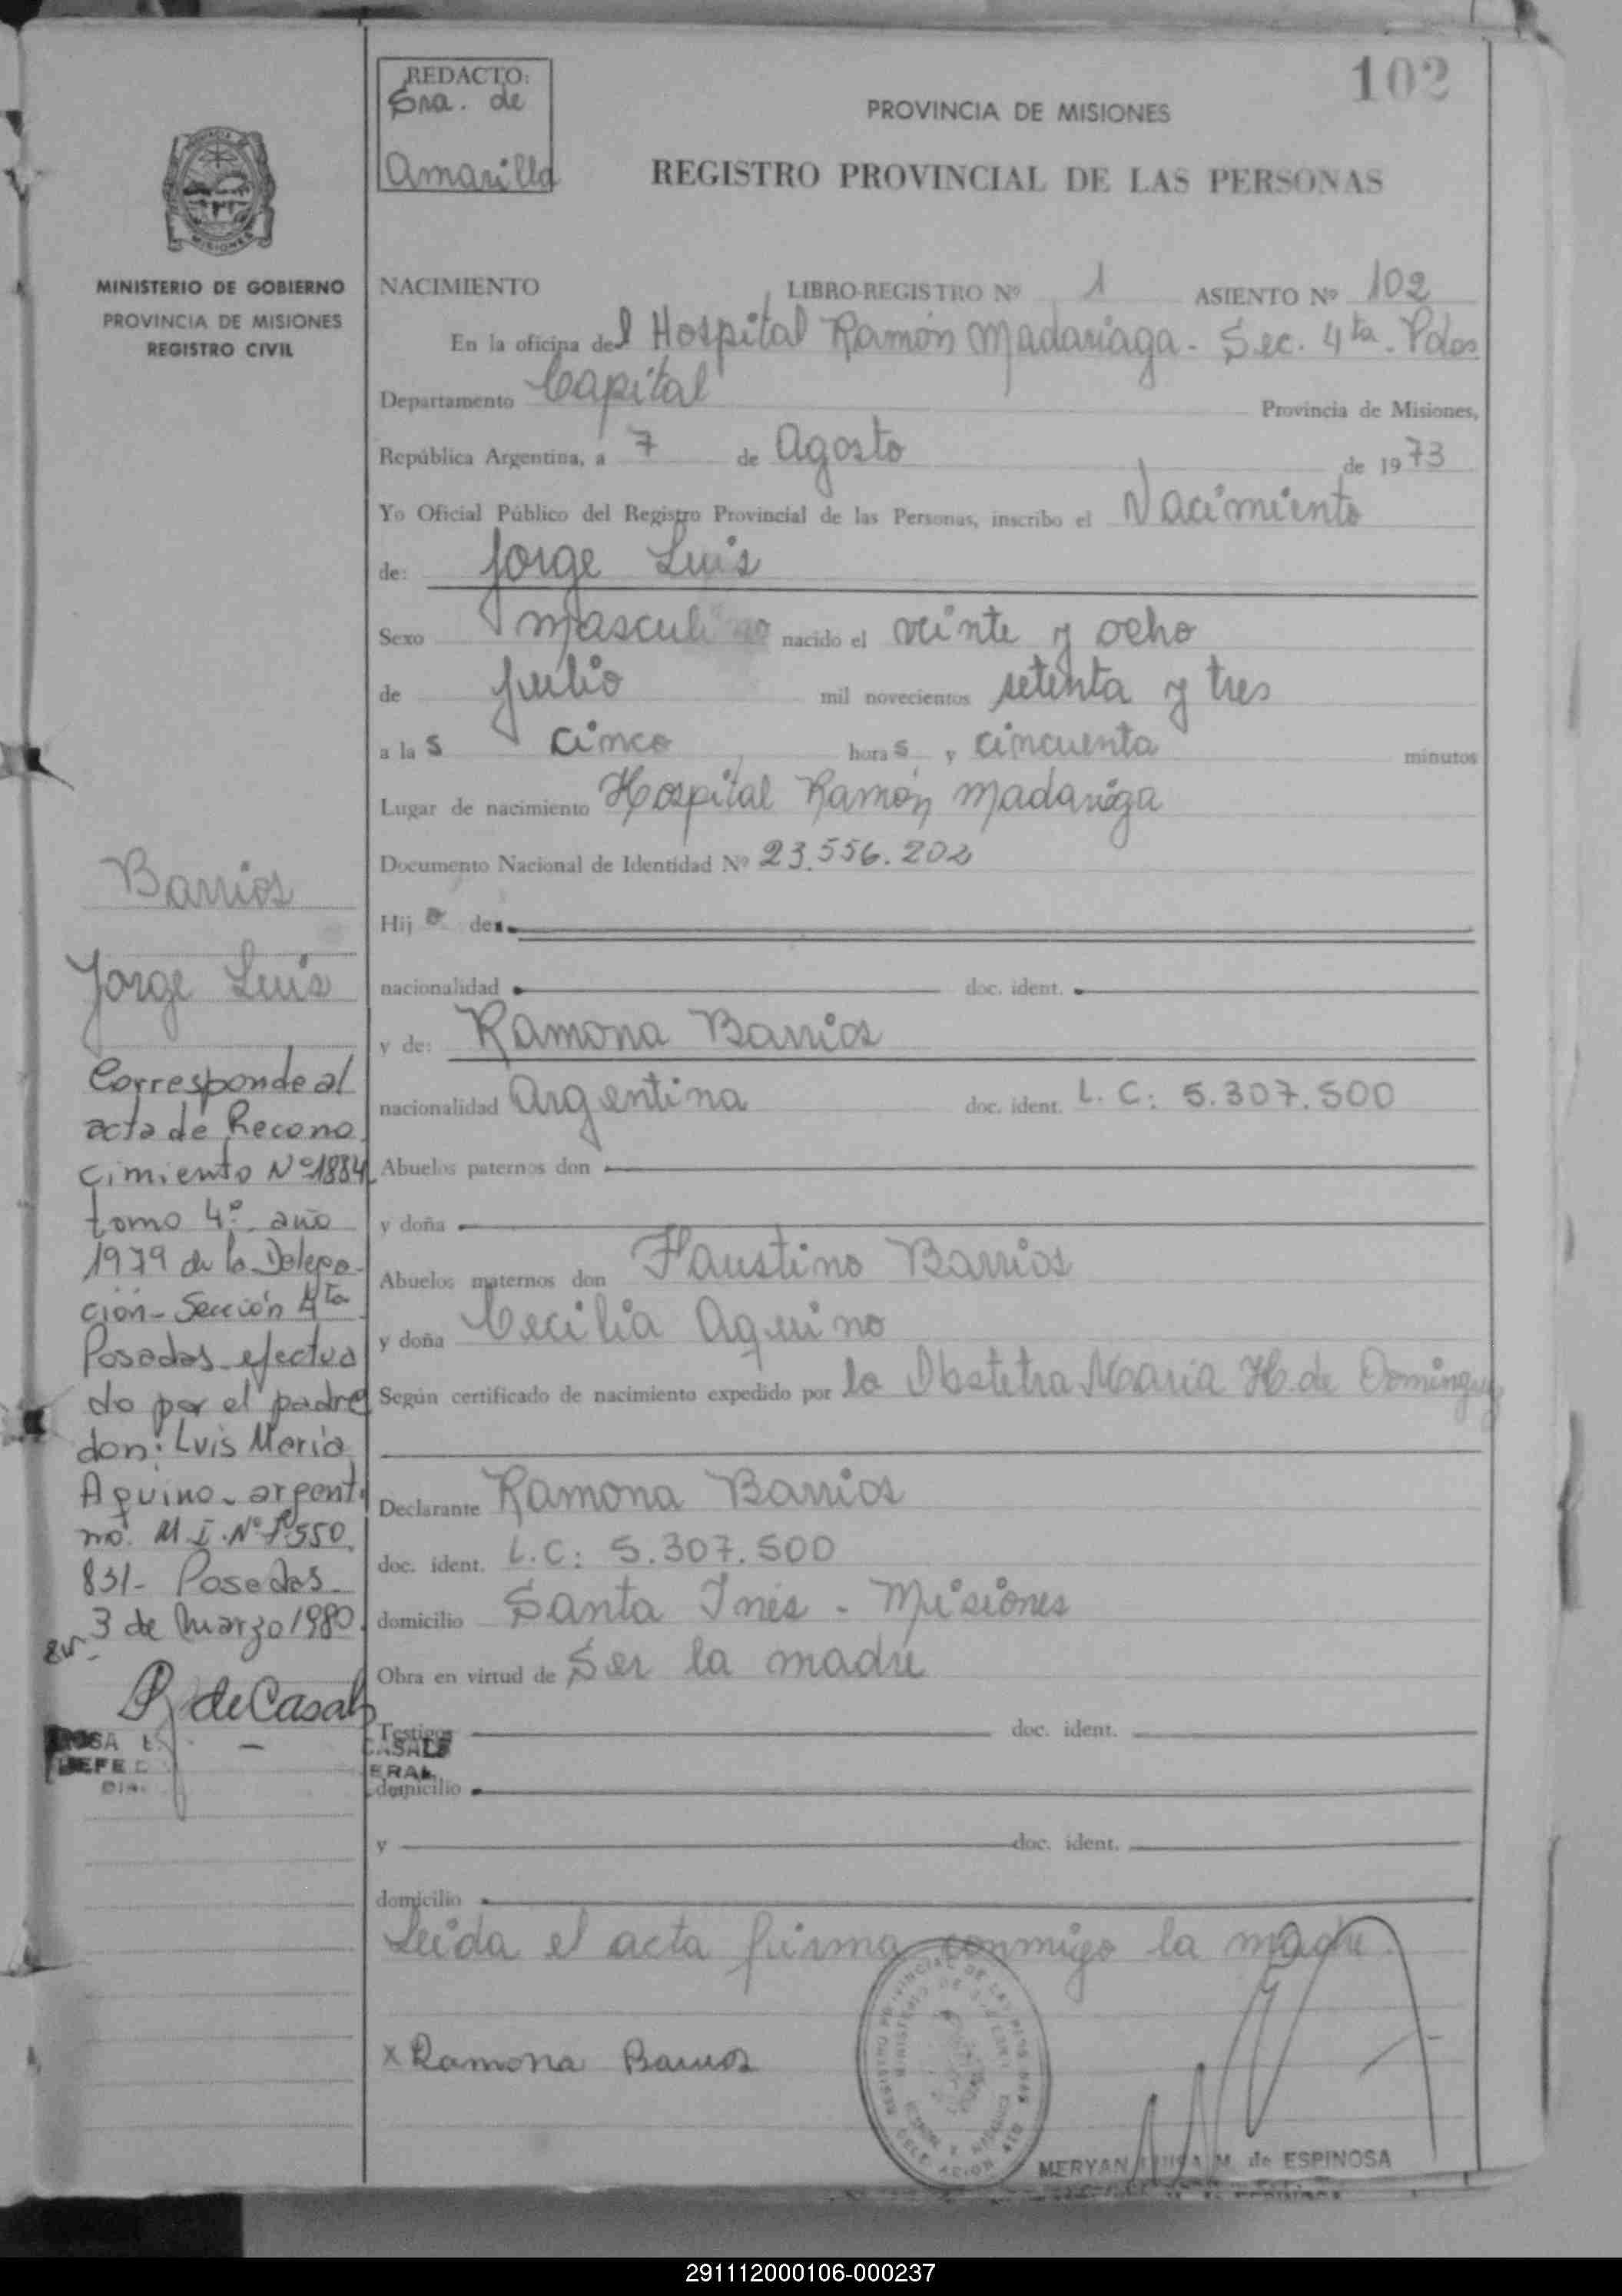 102
REDACTO:
Sra. de
Amarilla
PROVINCIA DE MISIONES
REGISTRO PROVINCIAL DE LAS PERSONAS
MISIONES
MINISTERIO DE GOBIERNO
PROVINCIA DE MISIONES
REGISTRO CIVIL
NACIMIENTO LIBRO-REGISTRO Nº 1 ASIENTO Nº 102
En la oficina del Hospital Ramón Madariaga - Sec. 4ta. Pdas
Departamento Capital Provincia de Misiones,
República Argentina, a 7 de Agosto de 1973
Yo Oficial Público del Registro Provincial de las Personas, inscribo el Nacimiento
de: Jorge Luis
Sexo masculino nacido el veinte y ocho
de julio mil novecientos setenta y tres
a las cinco horas y cincuenta minutos
Lugar de nacimiento Hospital Ramón Madariga
Documento Nacional de Identidad Nº 23.556.202
Hijo de
nacionalidad doc. ident.
y de: Ramona Barrios
nacionalidad Argentina doc. ident. L. C: 5.307.500
Abuelos paternos don
y doña
Abuelos maternos don Faustino Barrios
y doña Cecilia Aquino
Según certificado de nacimiento expedido por la Obstetra Maria H. de Dominguez
Declarante Ramona Barrios
doc. ident. L.C: 5.307.500
domicilio Santa Inés - Misiones
Obra en virtud de Ser la madre
Testigos doc. ident.
domicilio
y doc. ident.
domicilio
Leida el acta firma conmigo la madre.
x Ramona Barrios
MERYAN LUISA M. de ESPINOSA
Barrios
Jorge Luis
Corresponde al
acta de Recono
cimiento Nº 1884
tomo 4º. año
1979 de la Delega-
ción - Sección 4ta
Posadas efectua
do por el padre
don: Luis Maria
Aquino - argenti
no. M.I. Nº 7.550.
831- Posadas
3 de Marzo 1980.
R de Casals
ROSA
CASALS
JEFE
ERAL
291112000106-000237